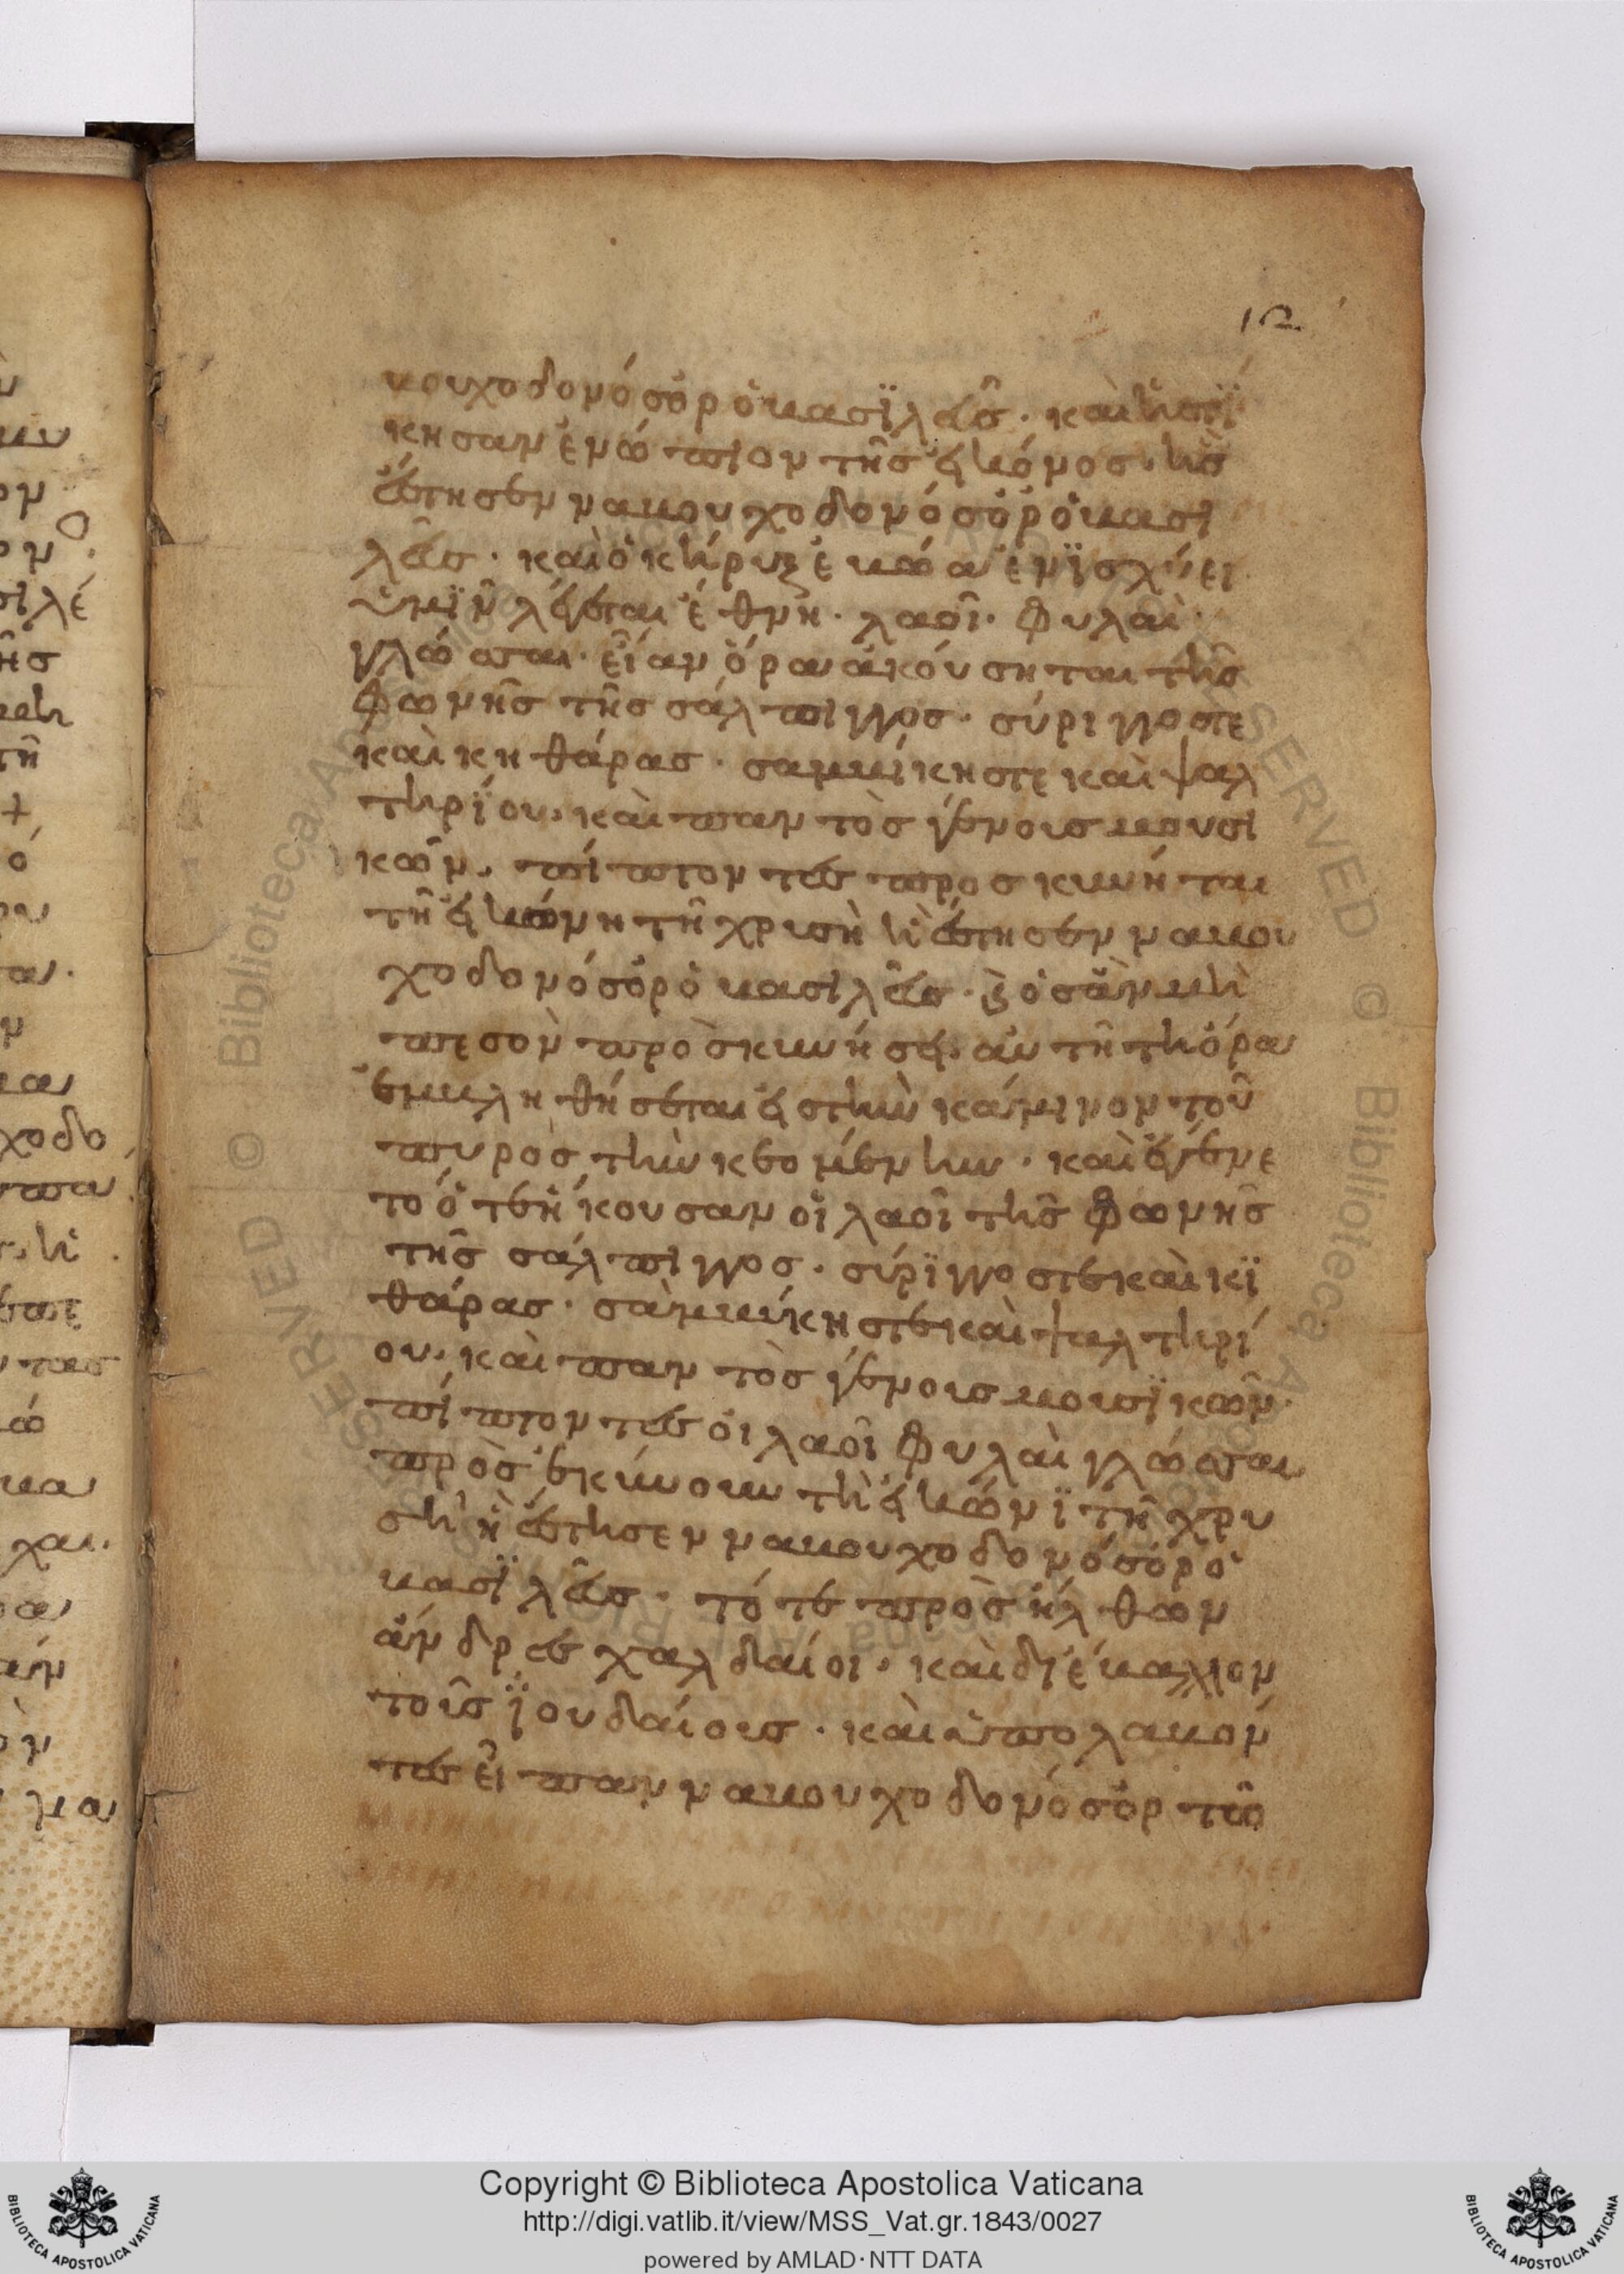 12
βουχοδονόσὸρ ὁ βασϊλεῦσ · καὶ ἱστϊ
κησαν ἐνώπιον τῆσ εἰκόνος · ἧσ
ἔστησεν ναβουχοδονόσὸρ ὁ βασι
λεῦσ · καὶ ὁ κήρυξ ἐβόα ἐνϊσχύει
ὑμῖν λέγεται ἔθνη · λαοῖ · φυλαὶ ·
γλῶσσαι · εῗ ἂν ὅρα ἀκούσηται τῆσ
φωνῆσ τῆσ σάλπιγγοσ · σύριγγοστε
καὶ κηθάρασ · σαμβύκηστε καὶ ψαλ
τηρΐου · καὶ παντὸσ γένουσ μουσι
κῶν · πίπτοντεσ προσκυνήται
τῆ εἰκόνη τῆ χρυσὴ ἣ ἔστησεν ναβου
χοδονόσὸρ ὁ βασιλεῦσ · καὶ ὁσ ἂν μὴ
πεσὸν προσκυνήσει · αὐτῆ τῆ ὅρα
ἐμβληθήσεται εἰσ τὴν κάμινον τοῦ
πυρὸσ τὴν κεομένην · καὶ ἐγένε
το ὅτε ἤκουσαν οἱ λαοῖ τῆσ φωνῆσ
τῆσ σάλπιγγοσ · σύρϊγγοστε καὶ κϊ
θάρασ · σὰμβύκηστε καὶ ψαλτηρί
ου · καὶ παντὸσ γένουσ μουσϊκῶν ·
πίπτοντεσ οἱ λαοῖ φυλαὶ γλῶσσαι
προσεκύνουν τὴ εἰκόνϊ τῆ χρυ
σὴ ἣ ἔστησεν ναβουχοδονόσὸρ ὁ
βασϊλεῦσ · τότε προσῆλθων
ἄνδρεσ χαλδαίοι · καὶ διέβαλλον
τοῦσ ϊουδαίουσ · καὶ ὑπολαβόν
τεσ εἶπαν ναβουχοδονόσὸρ τῶ
Copyright © Biblioteca Apostolica Vaticana
http://digi.vatlib.it/view/MSS_Vat.gr.1843/0027
powered by AMLAD · NTT DATA
BIBLIOTECA APOSTOLICA VATICANA
BIBLIOTECA APOSTOLICA VATICANA